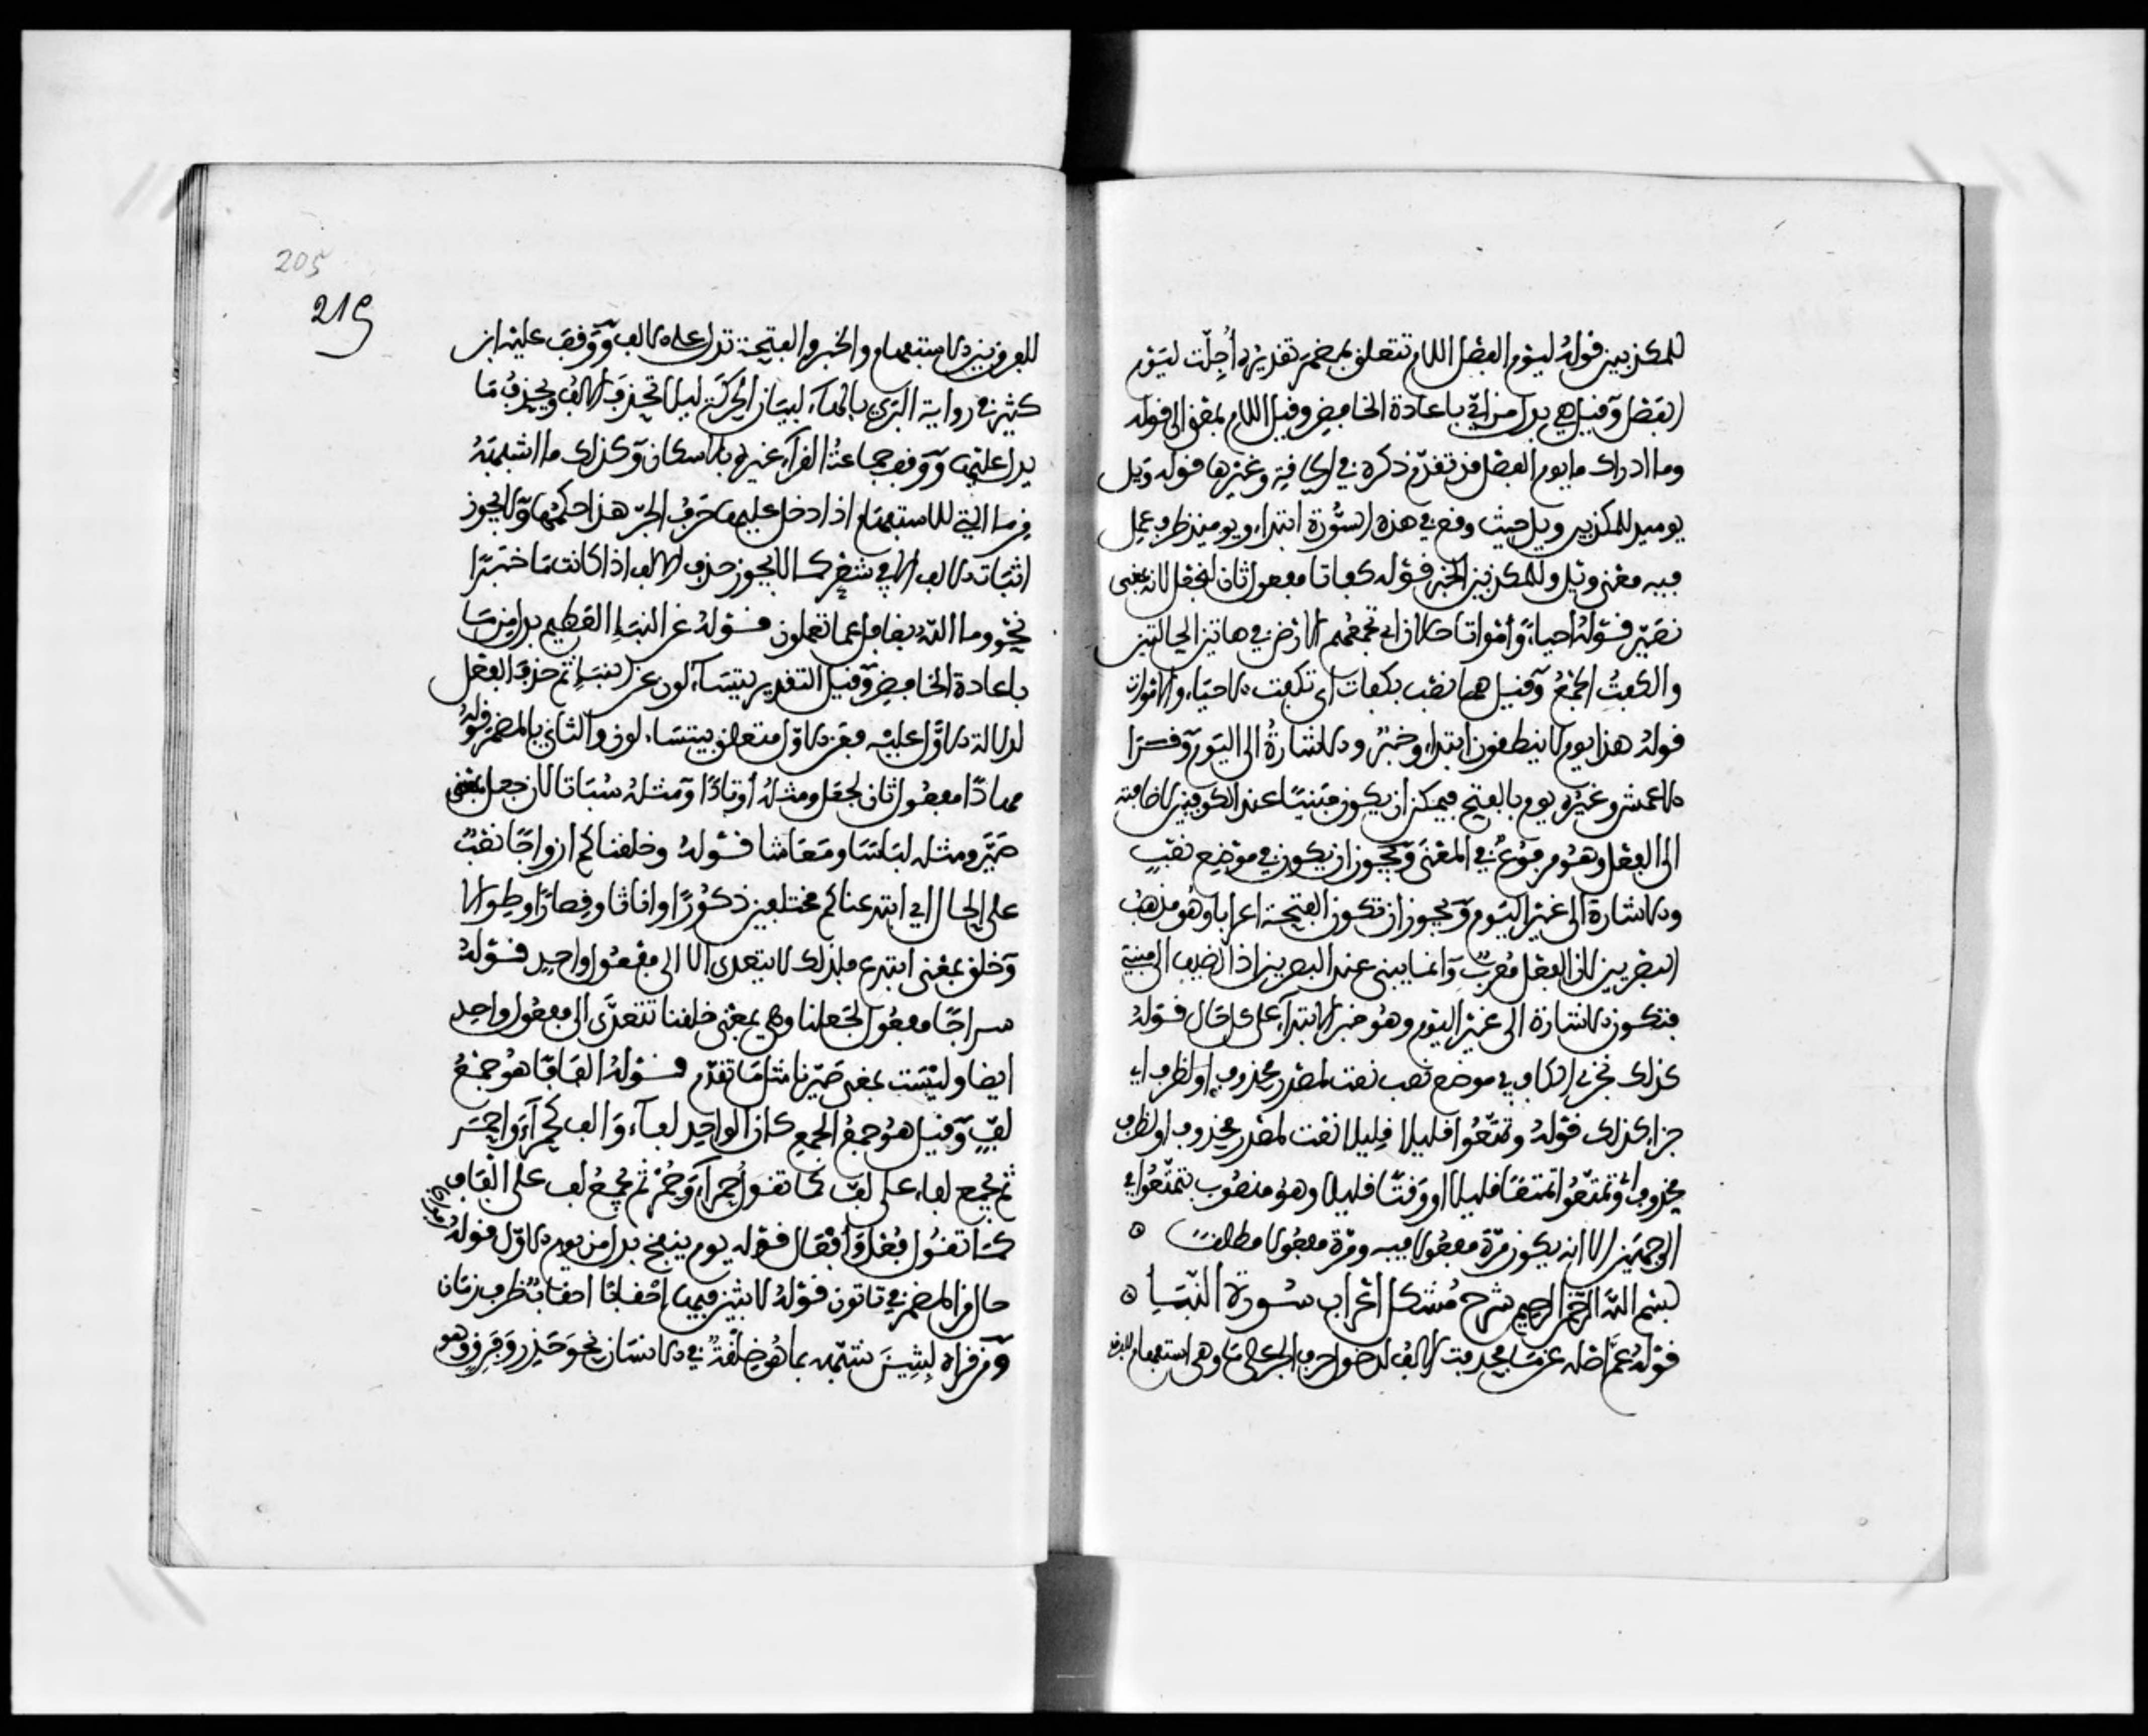 للمكذبين قوله ليوم الفصل اللام تتعلق بمضمر تقديره أُجِّلت ليوم
الفصل وقيل هي بدل من أيّ باعادة الخافض وقيل اللام بمعنى الى قوله
وما ادراك ما يوم الفصل قد تقدّم ذكره في الحاقة وغيرها قوله ويل
يوميذ للمكذبين ويل حيث وقع في هذه السّورة ابتداء ويوميذ ظرف عمِل
فيه معنى ويل وللمكذبين الخبر قوله كفاتا مفعول ثان لنجعل لانه بمعنى
نصيّر قوله احياءً وأمْواتا حالان اي تجمعهم الارض في هاتين الحالتين
والكفتُ الجمْعُ وقيل هما نصْب بكفات اي تكفت الاحياء والاموات
قوله هذا يوم لا ينطقون ابتداء وخبر والاشارةُ الى اليوم وقرأ
الاعمش وغيره يوم بالفتح فيمكن ان يكون مبنيًّا عند الكوفيين لاضافته
الى الفعل وهو مرفوع في المعنى ويجوز ان يكون في موضع نصْبٍ
والاشارة الى غير اليوم ويجوز ان تكون الفتحة اعرابا وهو مذهب
البصريين لان الفعل مُعرب وانما يبنى عند البصريين اذا اضيف الى مبني
فتكون الاشارة الى غير اليوم وهو خبر الابتداء على كل حال قوله
كذلك نجزي الكاف في موضع نصب نعت لمصدر محذوف او لظرف اي
جزاء كذلك قوله وتمتّعُوا قليلا قليلا نعت لمصدر محذوف او لظرف
محذوف اي وتمتّعُوا تمتعًا قليلا او وقتًا قليلا وهو منصوب بتمتّعُوا في
الوجهين الا انه يكون مرّة مفعولا فيه ومرّة مفعولا مطلقًا
بسم الله الرحمن الرحيم شرح مُشكل اعْراب سُورة النّبَإِ
قوله عمّ اصله عن مَا فحذفت الالف لدخول حرف الجر على مَا وهي استفهام للفرق
205
219
للفرق بين الاستفهام والخبر والفتحة تدل على الالف ووقف عليه ابن
كثير في رواية البزي بالهاء لبيان الحركة ليلا تُحذف الالف ويحذف مَا
يدل عليها ووقف جماعة القراء غيره بالاسكان وكذلك ما اشبهه
مِن مَا التي للاستفهام اذا دخل عليها حَرف الجرّ هذا حكمها ولا يجوز
اثبات الالف الا في شعر كما لا يجوز حذف الالف اذا كانت مَا خبرًا
نحو وما الله بغافل عما تعملون قوله عن النبَإِ العَظيم بدل مِن مَا
باعادة الخافض وقيل التقدير يتساءلون عن النبَإِ ثم حذف الفعل
لدلالة الاوّل عليه فعَن الاوّل متعلق بيتساءلون والثاني بالمضمر قوله
مهادًا مفعول ثان لجعل ومثله أوتادًا ومثله سُباتا لان جعل بمعنى
صَيَّر ومثله لبَاسًا ومَعَاشا قوله وخلقناكم ازواجًا نصْبٌ
على الحال اي ابتدعناكم مختلفين ذكورًا واناثا وقِصارًا وطِوالا
وخلق بمعنى ابتدع فلذلك لا يتعدى الا الى مفعول واحدٍ قوله
سراجًا مفعول لجَعلنا وهي بمعنى خلقنا تتعدّى الى مفعول واحدٍ
ايضا وليْست بمعنى صَيّرنا مثل مَا تقدّم قوله الفافًا هو جمْعُ
لفٍّ وقيل هو جمعُ الجمع كان الواحد لفاء والف كحمراء واحمر
ثم يُجمع لفاء على لفّ كما تقول حمراء وحُمْر ثم يُجمع لف على الفاف
كما تقول قُفل وأقفال قوله يوم ينفخ بدل من يوم الاوّل قوله
حال من المضمر في تاتون قوله لابثين فيها احْقابًا احقابًا ظرف زمَان
ومن قراه لبِثين شبّهه بما هو خِلْقةٌ في الانسان نحو حَذِر وفَرِق وهو